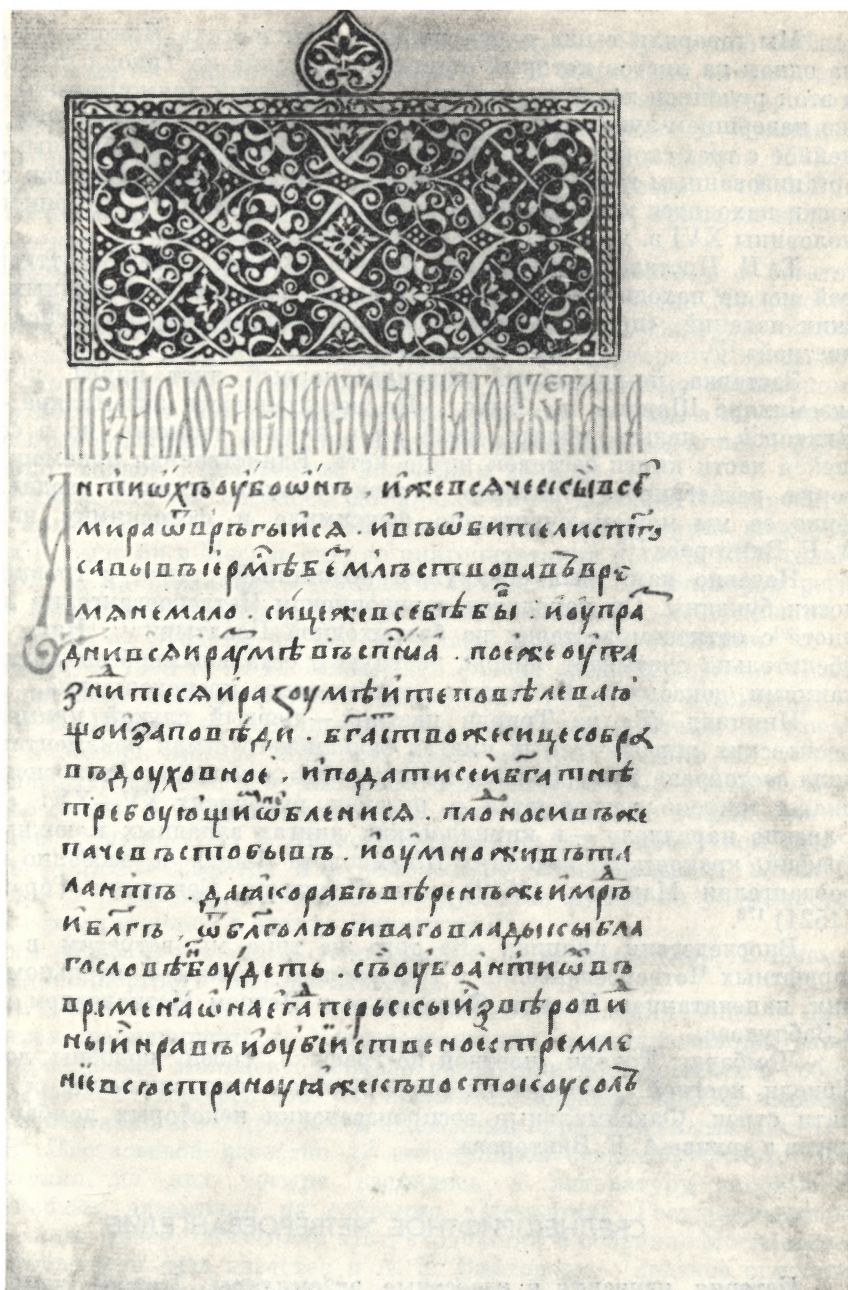 предсловїенастоѧщаѧпоꙁѣнїа
Антїѡ́хъоубоѡ́нъ . и҆жевсячески҆все҆
мираѿвръгыи҆ся . ивъѡбителист҃го
савывъїе҆рлⷭ҇мѣбеꙁмлъствовавъвре
мянемало . сицежевсебѣбыⷭ҇ . и҆оупра
днивсяираꙁꙋмѣвъсп҃са . поежеоупра
ꙁнитесяираꙁоумѣи҆теповѣлеваю҆
щоиꙁаповѣди . бг҃аⷮствожесицесобра
въдоуховное . и҆податисеи҆бг҃атнѣ
требоующиⷨѡблѣнися . плоⷣносивъже
пачевъстобывъ . иоумноживъта
лантъ . даꙗ҆корабъвѣренъжеи҆мⷣръ
иблг҃ъ ѿблг҃олюбивагovладыкыбла
гословѣⷩ҇боудеть . съоубоантиѡ҆въ
временаѡ҆наегⷣаперьскыи҆ꙁвѣровиⷣ
ныи҆нравъи҆оубїи҆ственоестремле
нїевсюстраноуꙗжекъвостокоусолъ